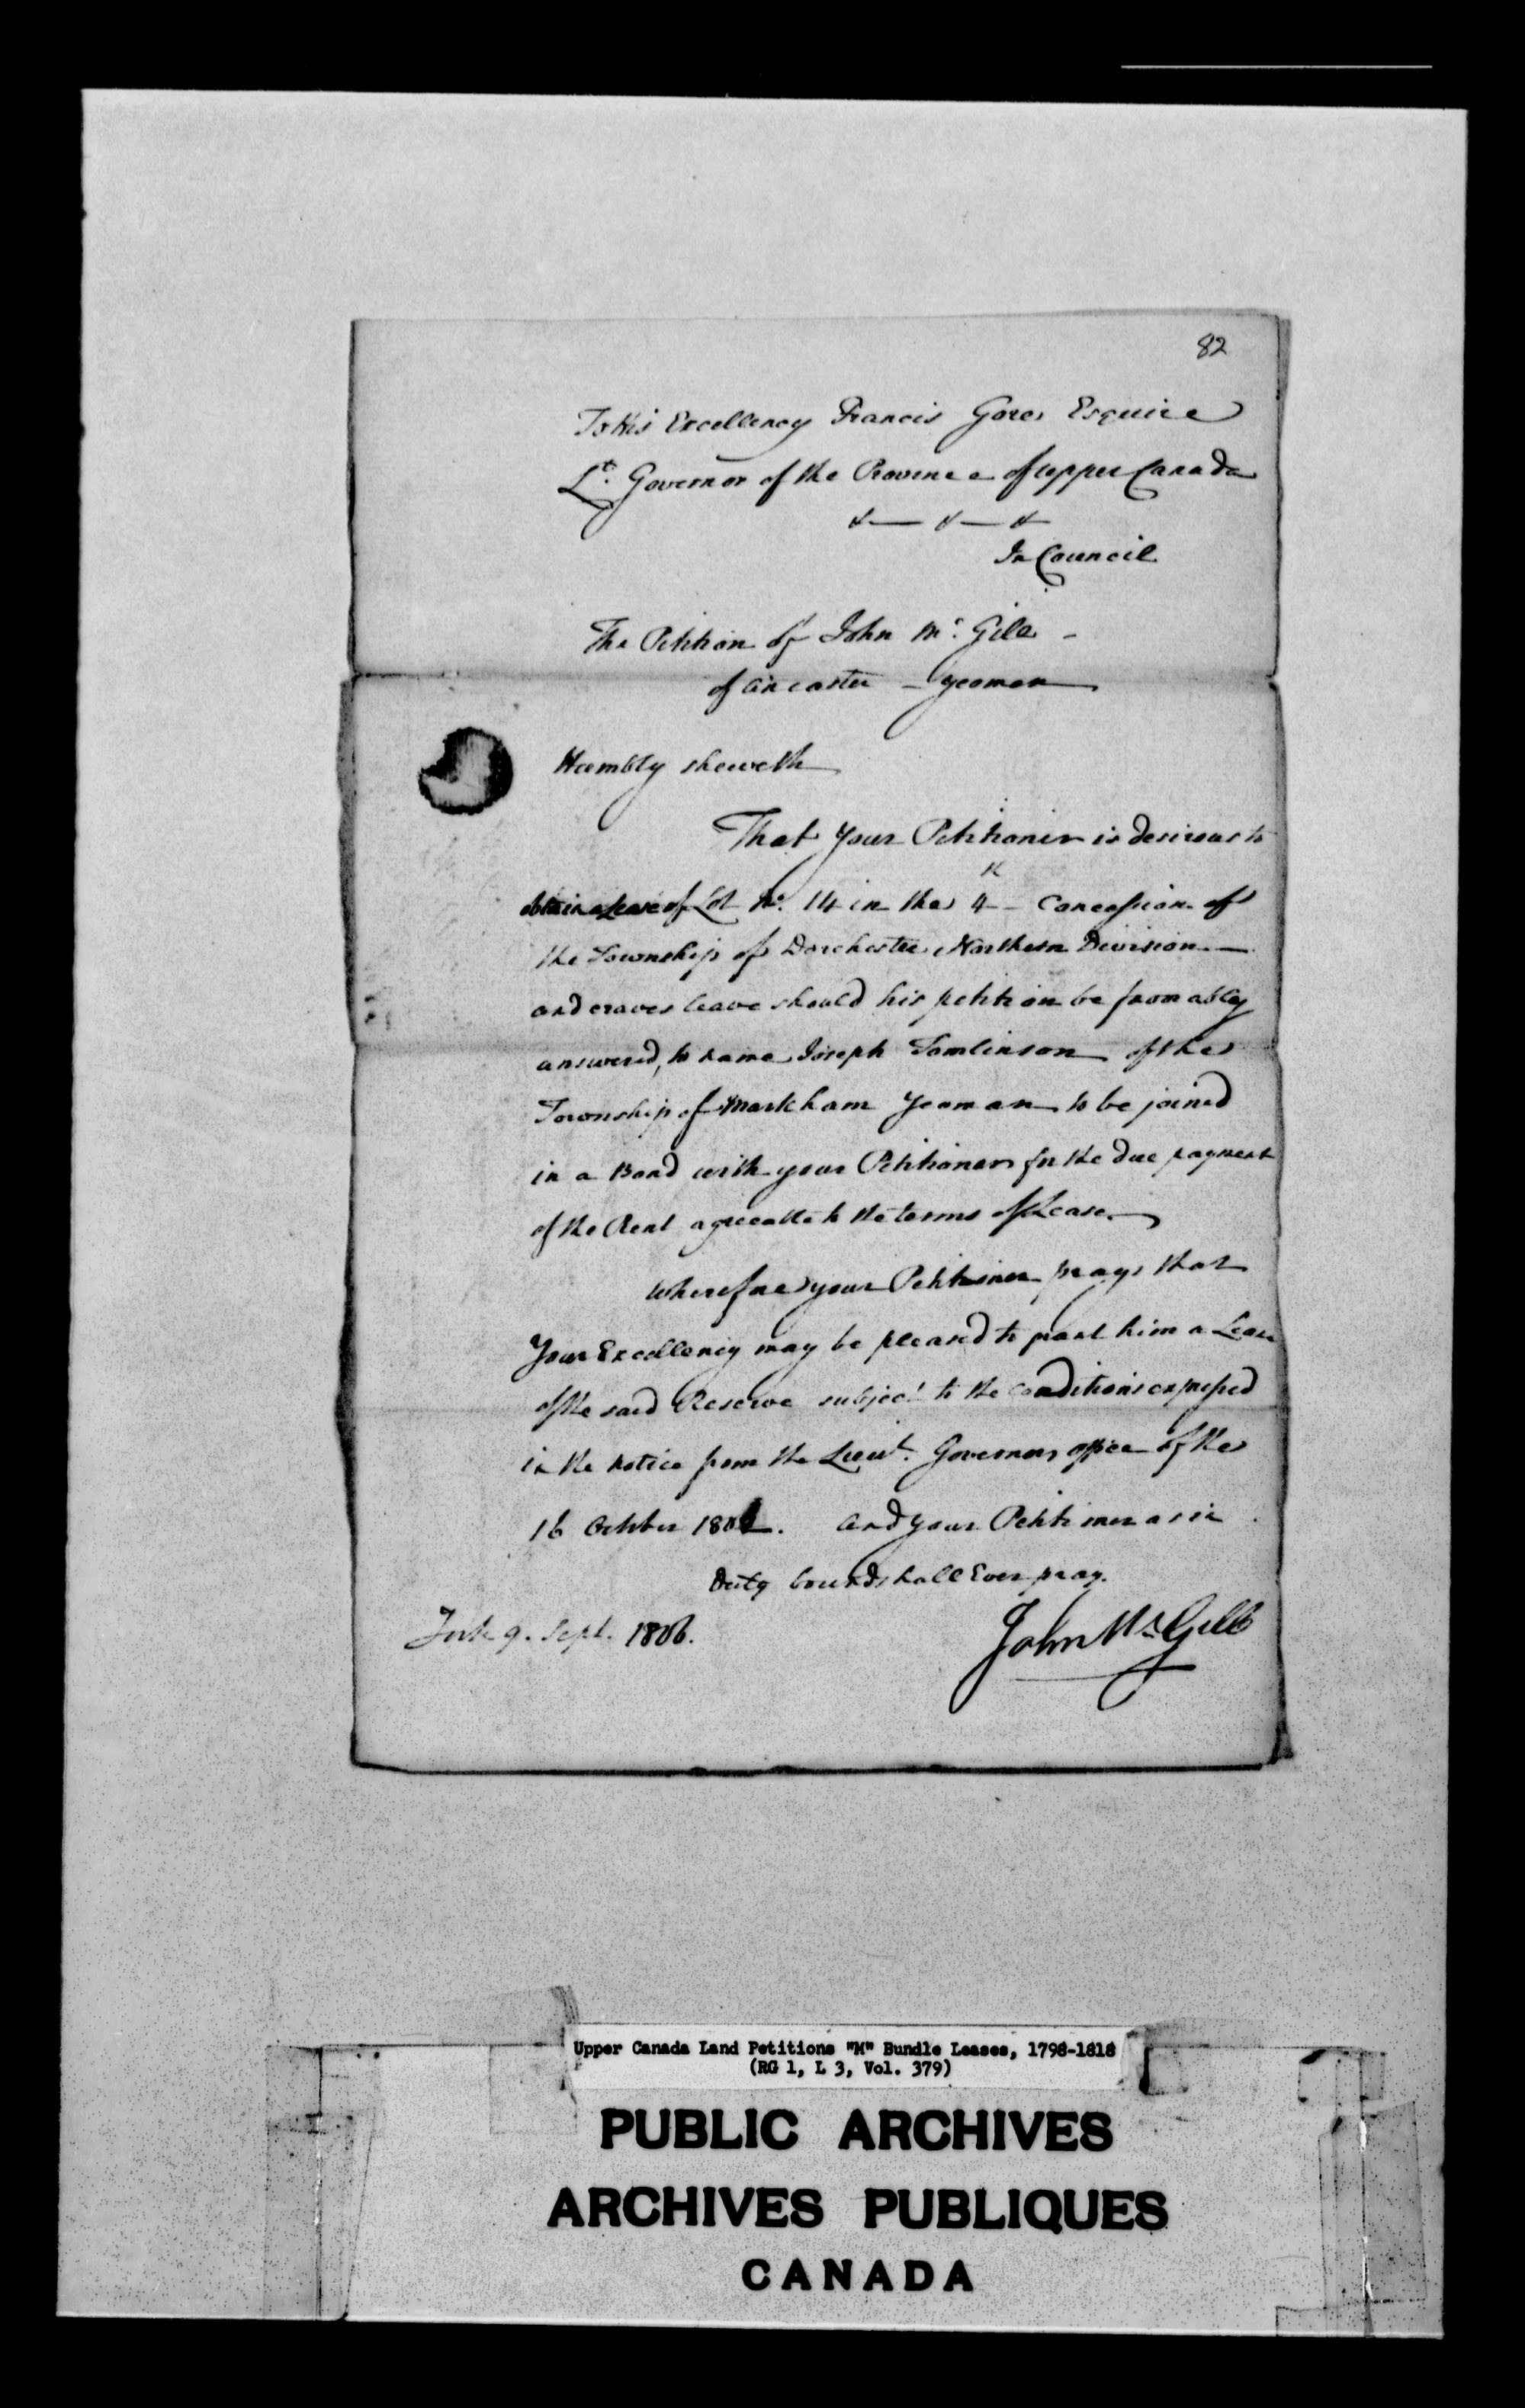 82
To His Excellency Francis Gore Esquire
Lt. Governor of the Province of upper Canada
&— &— &
In Council
The Petition of John Mc. Gill –
of Ancaster – yeoman
Humbly sheweth
That your Petitioner is desirous to
obtain a Lease of Lot No. 14 in the 4th – Concession of
the Township of Dorchester, Northern Division —
and craves leave should his petition be favorably
answered, to name Joseph Tomlinson of the
Township of Markham yeoman to be joined
in a Bond with your Petitioner for the due payment
of the Rent agreeable to the terms of Lease.
Wherefore your Petitioner prays that
Your Excellency may be pleased to grant him a Lease
of the said Reserve subject to the conditions expressed
in the notice from the Lieut. Governors office of the
16 October . And your Petitioner as in
Duty bound shall Ever pray.
York 9. Sept. 1806.
John McGill
Upper Canada Land Petitions "M" Bundle Leases, 1798-1818
(RG 1, L 3, Vol. 379)
PUBLIC ARCHIVES
ARCHIVES PUBLIQUES
CANADA